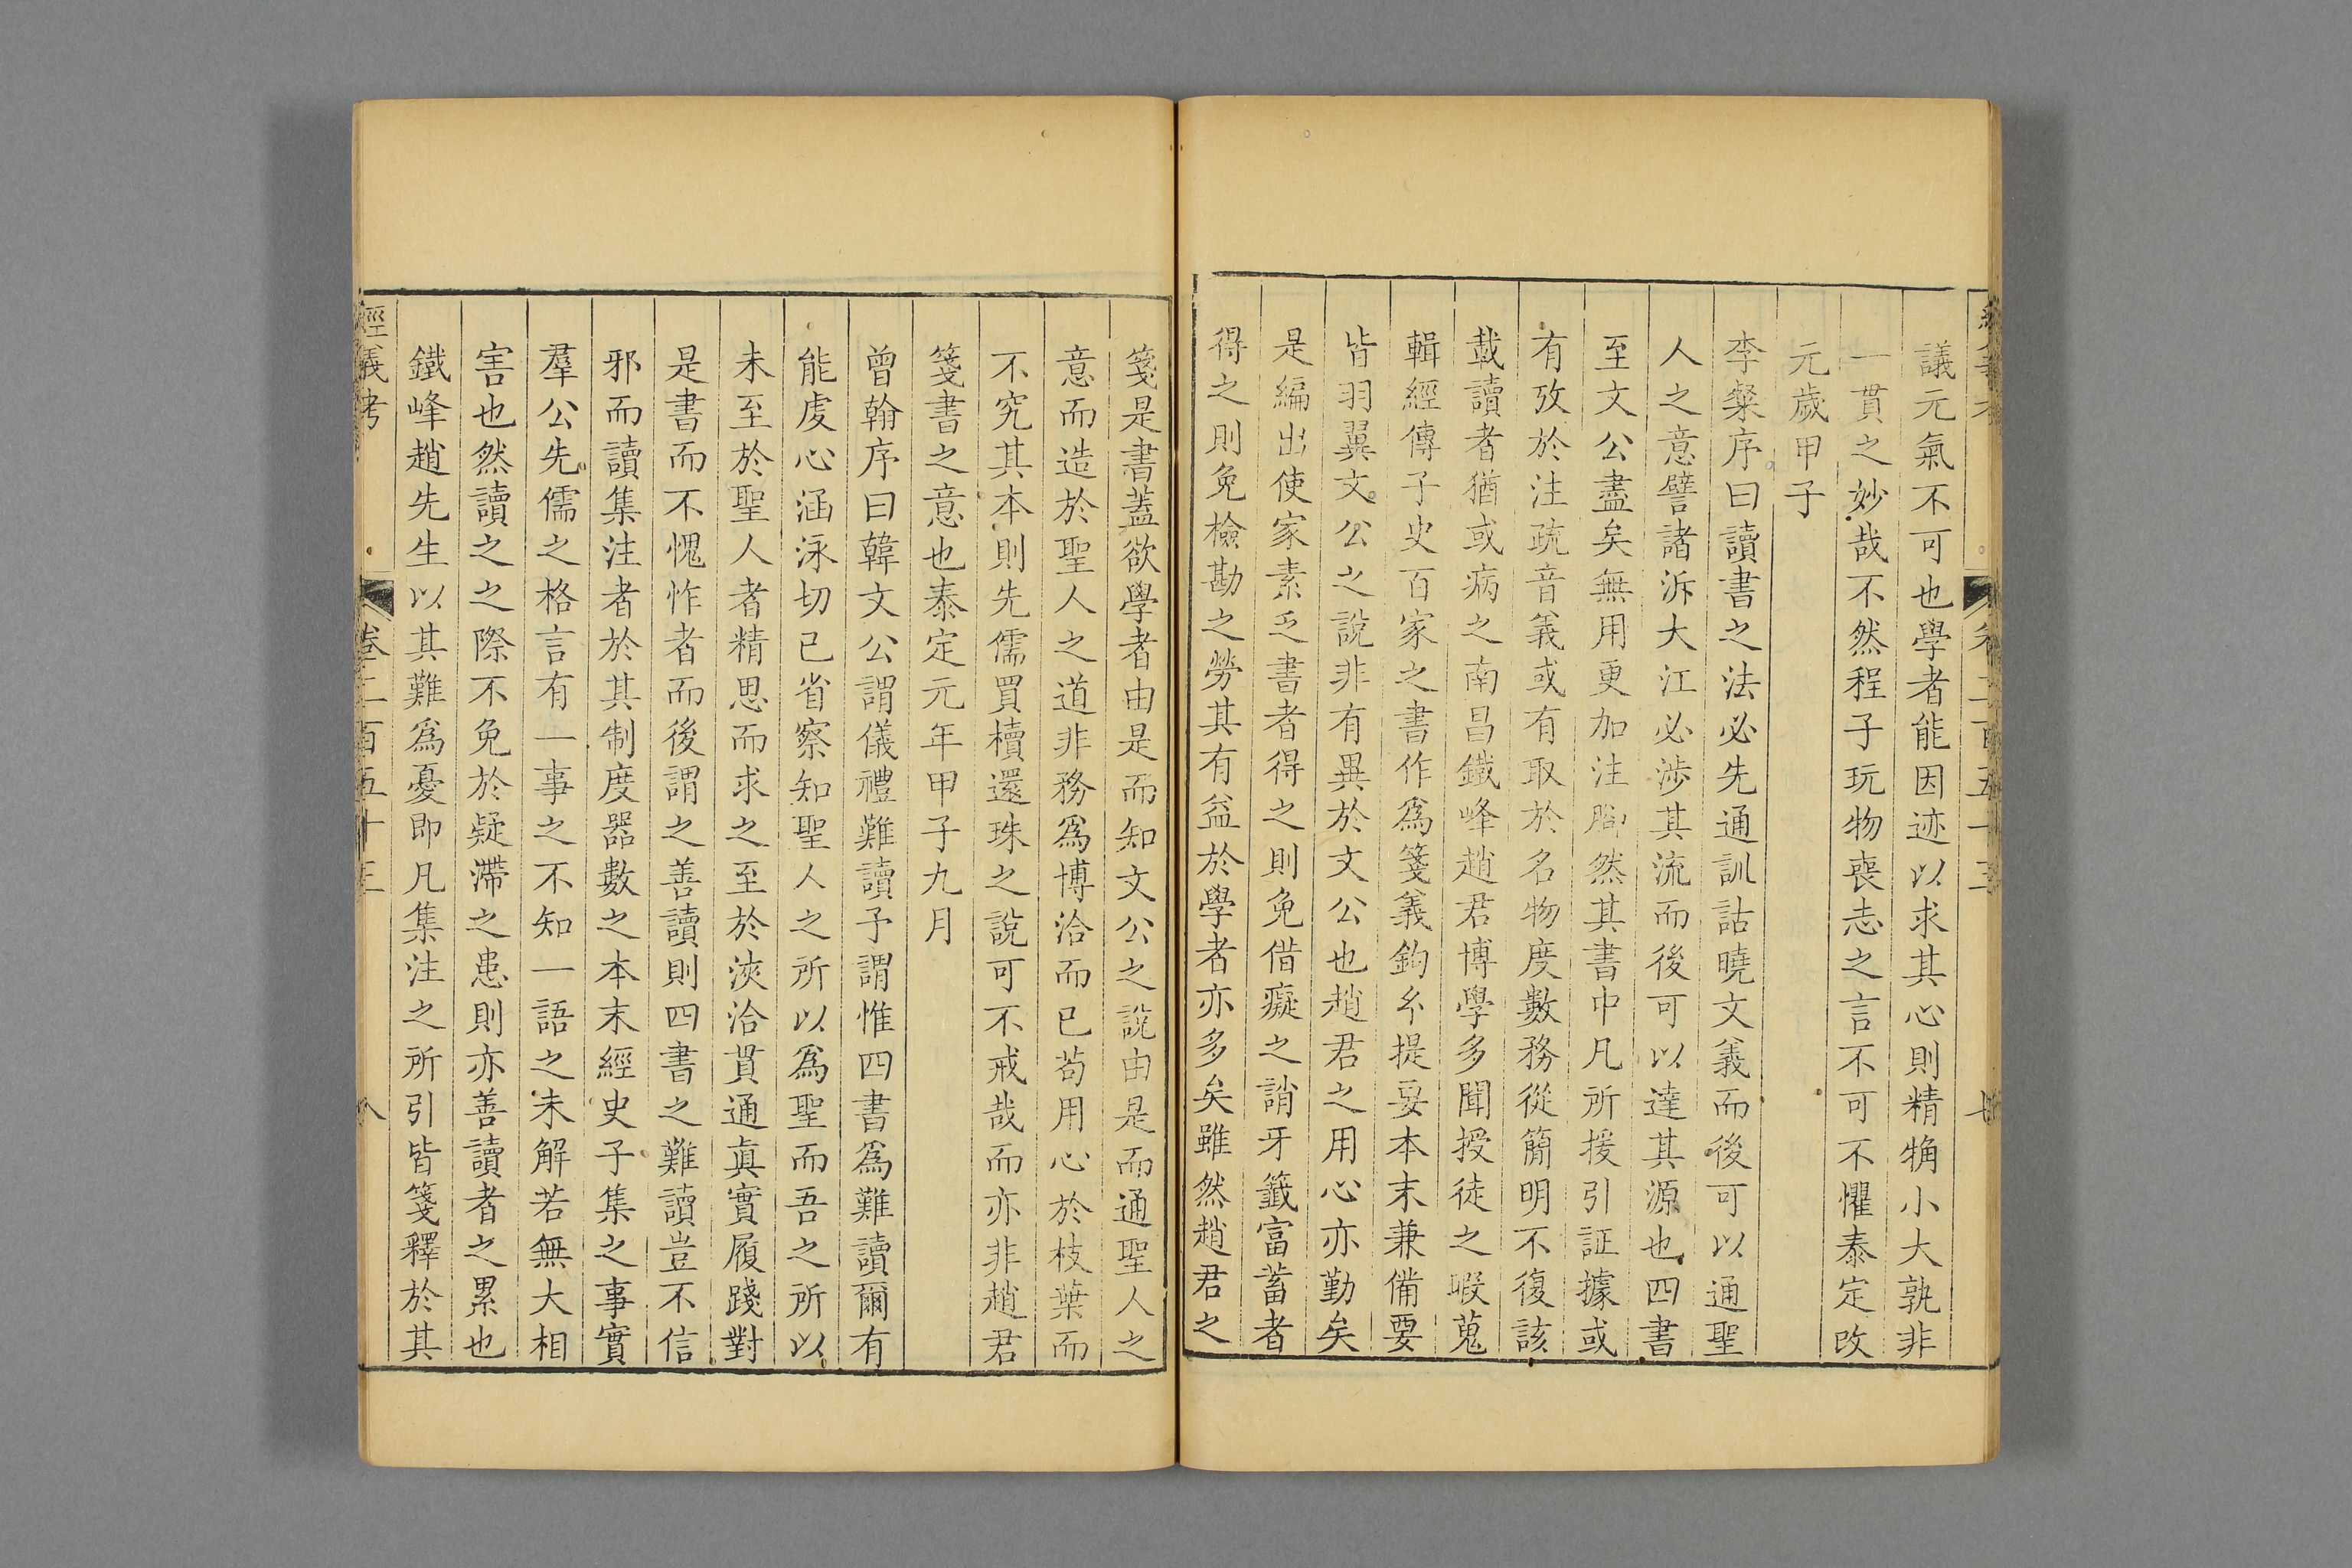 議元氣不可也學者能因迹以求其心則精觕小大孰非
一貫之妙哉不然程子玩物喪志之言不可不懼泰定改
元歲甲子
李粲序曰讀書之法必先通訓詁曉文義而後可以通聖
人之意譬諸泝大江必涉其流而後可以達其源也四書
至文公盡矣無用更加注腳然其書中凡所援引証據或
有攷於注疏音義或有取於名物度數務從簡明不復該
載讀者猶或病之南昌鐵峰趙君博學多聞授徒之暇蒐
輯經傳子史百家之書作爲箋義鉤玄提要本末兼備要
皆羽翼文公之說非有異於文公也趙君之用心亦勤矣
是編出使家素乏書者得之則免借癡之誚牙籤富蓄者
得之則免檢勘之勞其有益於學者亦多矣雖然趙君之
箋是書蓋欲學者由是而知文公之說由是而通聖人之
意而造於聖人之道非務爲博洽而已苟用心於枝葉而
不究其本則先儒買櫝還珠之說可不戒哉而亦非趙君
箋書之意也泰定元年甲子九月
曾翰序曰韓文公謂儀禮難讀予謂惟四書爲難讀爾有
能虔心涵泳切已省察知聖人之所以爲聖而吾之所以
未至於聖人者精思而求之至於浹洽貫通眞實履踐對
是書而不愧怍者而後謂之善讀則四書之難讀豈不信
邪而讀集注者於其制度器數之本末經史子集之事實
羣公先儒之格言有一事之不知一語之未解若無大相
害也然讀之之際不免於疑滯之患則亦善讀者之累也
鐵峰趙先生以其難爲憂即凡集注之所引皆箋釋於其
經義考 卷二百五十三 八